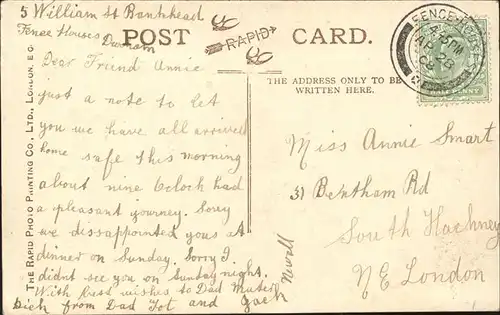 5 William St Bankhead
Fence Houses Durham
Dear Friend Annie
just a note to let
you we have all arrived
home safe this morning
about nine Oclock had
a pleasant journey. Sorry
we dissappointed you at
dinner on Sunday. Sorry I
didn't see you on Sunday night.
With best wishes to Dad Mater
Dick from Dad Tot and Jack
Newall
POST CARD.
RAPID
THE ADDRESS ONLY TO BE
WRITTEN HERE.
Miss Annie Smart
31 Bentham Rd
South Hackney
NE London
THE RAPID PHOTO PRINTING CO., LTD., LONDON, E.C.
FENCE